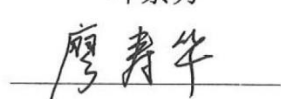 廖寿华